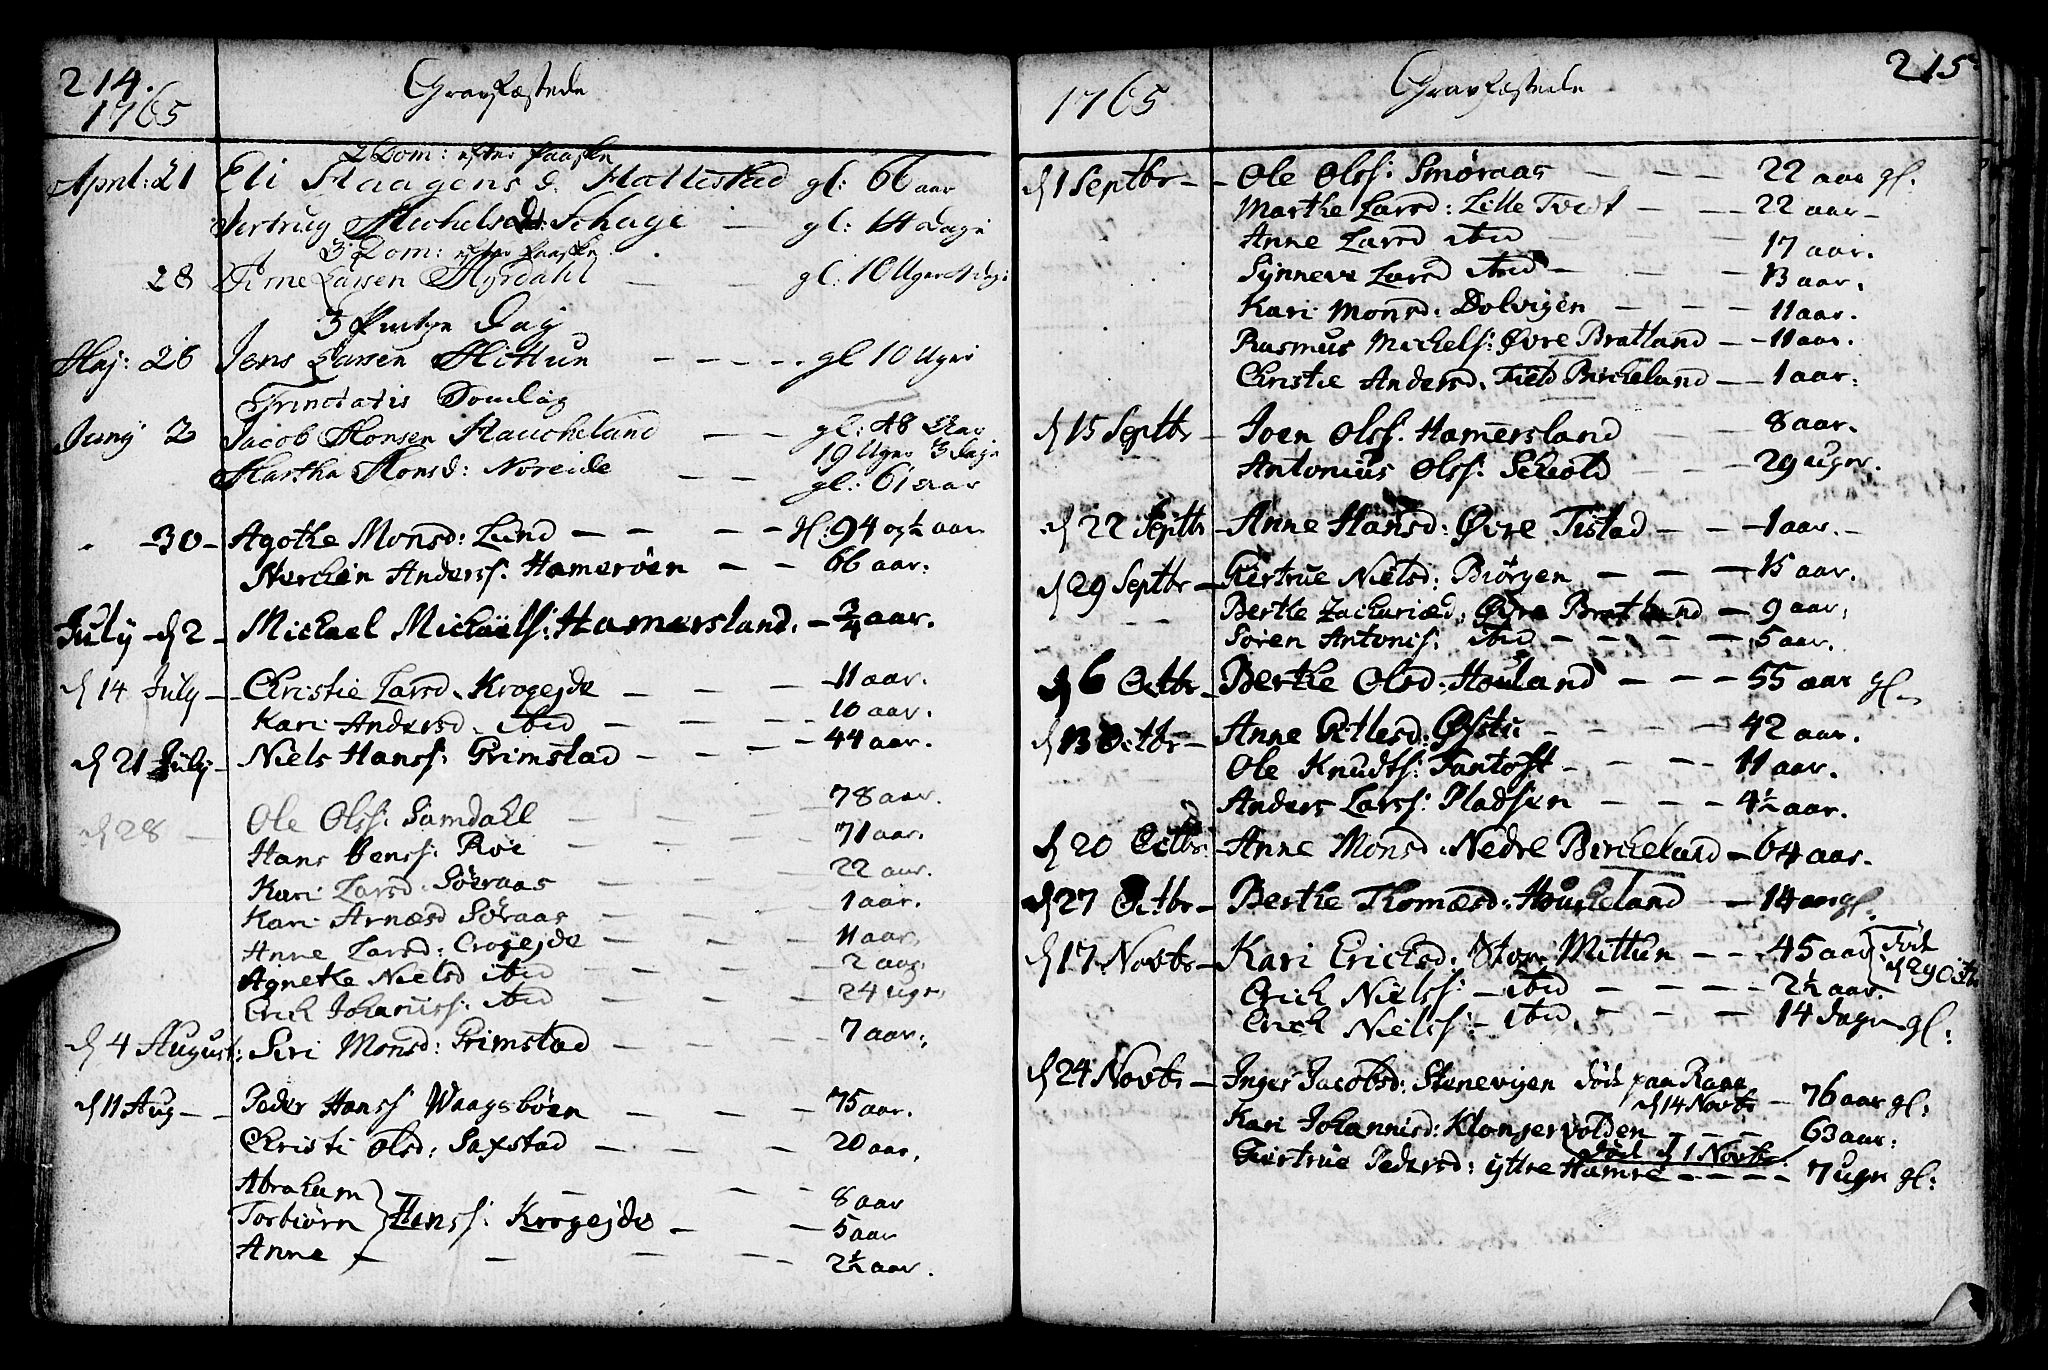 214.
1765
Gravfæstede
2 Dom: efter Paaske
April: 21 Eli Haagens d. Hatlestad gl: 66 aar
Giertrug Michelsd: Schage — gl: 14 Dage
3 Dom: efter Paaske
28 Larsen Myrdahl — — gl: 10 Uger 4 dag:
3 Pintze Dag
Maj: 26 Jens Larsen Mittun — — — gl 10 Uger
Trinitatis Søndag
Juny 2 Jacob Monsen Haucheland — — gl: 48 Aar
19 Uger 3 dage
Martha Monsd: Noreide — — gl: 61 Aar
- 30 - Agothe Monsd: Lund — — — gl: 94 og ½ aar
Anderss: Hamerøen — — 66 aar:
July d 2 - Michael Michaëls: Hamersland. — ¾ aar.
d 14 July — Christie Larsd. Krogejde — — — 11 aar.
Kari Andersd. ibid — — — 10 aar.
d 21 July — Niels Hanss: Grimstad — — — 44 aar.
d 28 — Ole Olss: Samdahl — — — 78 aar.
Hans Jenss: Roe — — — 71 aar.
Kari Larsd. Søraas — — — 22 aar.
Kari Arnæsd Søraas — — — 1 aar.
Anne Larsd: Crogejde — — — 11 aar.
Agnethe Nielsd ibid — — — 2 aar.
Erich Johaniss: ibid — — — 24 ugr.
d 4 August: Siri Monsd: Grimstad — — — 7 aar.
d 11 Aug - - Peder Hanss Waagsbøen — — 75 aar.
Christi Olsd: Saxstad — — — 20 aar.
Abraham — — — 8 aar
Torbiørn } Hanss: Krogejde — — 5 aar
Anne — — — 2½ aar.
215
1765
Gravfæstede
d 1 Septbr - - Ole Olss: Smøraas — — — 22 aar gl.
Marthe Larsd: Lille Tvedt — — 22 aar -
Anne Larsd ibid — — — 17 aar.
Synneve Larsd ibid — — — 13 aar.
Kari Monsd: Dolvigen — — — 11 aar.
Rasmus Michels: Øvre Bratland — - 11 aar.
Christie Andersd. Tield Bircheland — 1 aar.
d 15 Septbr - Joen Olss. Hamersland — — 8 aar.
Antonius Olss: Schiold — — 29 uger.
d 22 Septbr - Anne Hansd: Øvre Tistad — — 1 aar. -
d 29 Septbr — Giertrue Nielsd: Biørgen — — — 15 aar.
Berthe Zachariæd: Øvre Bratland — 9 aar.
Søren Antonis: ibid — — — 5 aar.
d 6 Octbr - Berthe Olsd: Houland — — — 55 aar gl.
d 13 Octbr - Anne Pittesd: Øste — — — 42 aar.
Ole Knudts: Fantoft — — — 11 aar.
Anders Larss: Pladsen — — — 4½ aar.
d 20 Octbr: Anne Monsd. Nedre Bircheland — 64 aar.
d 27 Octbr - Berthe Thomæsd: Houcheland — 14 aar gl.
d 17 Novbr - Kari Erichsd: Stor Mittun — — 45 aar { død
d 29 Octbr
Erich Nielss: — ibid — — — 2½ aar.
Erich Nielss — ibid. — — — 14 dager gl:
d 24 Novbr — Inger Jacobsd: Stenevigen død paa Rane
d 14 Novbr — 76 aar gl:
Kari Johannisd: Klongervolden — — — 63 aar:
død d 1 Novbr.
Giertrue Pedersd: yttre Hamre - - - - 7 ugr gl: